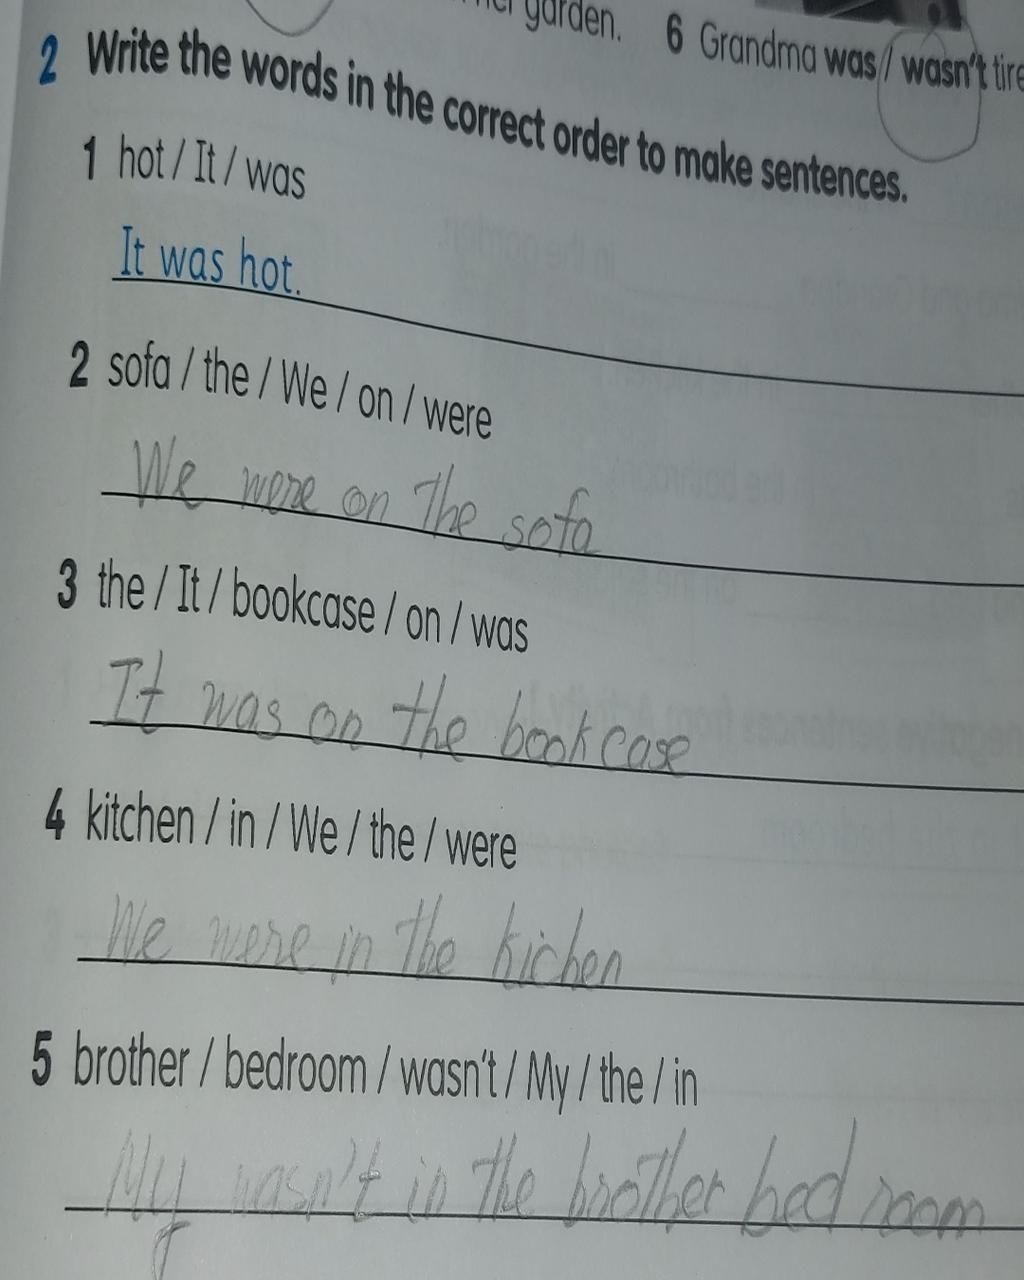 garden.
6 Grandma was / wasn't
2 Write the words in the correct order to make sentences.
1 hot / It / was
It was hot.
2 sofa / the / We / on / were
We were on the sofa
3 the / It / bookcase / on / was
It was on the bookcase
4 kitchen / in / We / the / were
We were in the kichen
5 brother / bedroom / wasn't / My / the / in
My wasn't in the brother bed room